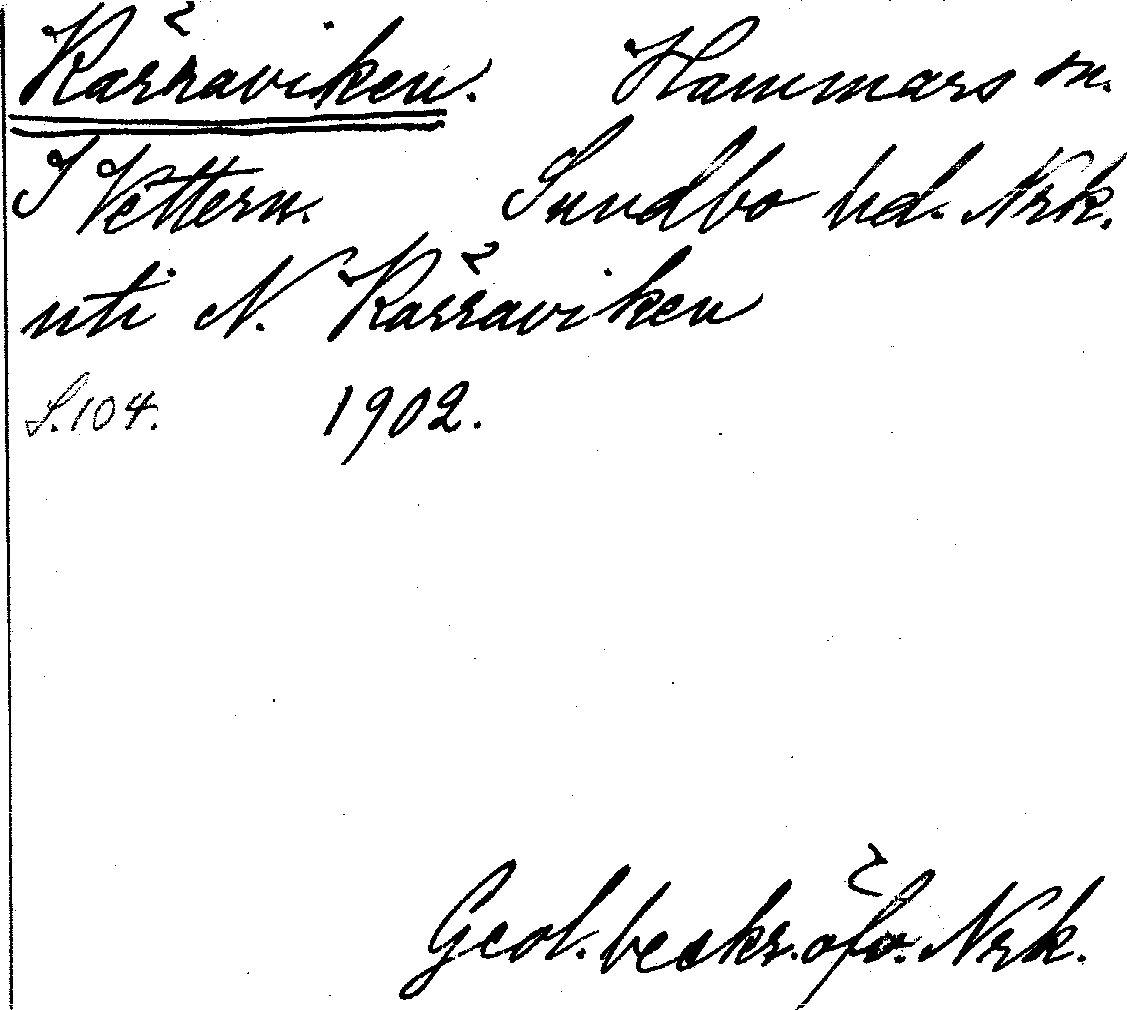 Kärraviken. Hammars sn.
I Vettern. Sundbo hd. Nrk.
uti N. Kärraviken
S. 104. 1902.
Geol. beskr. öfv. Nrk.